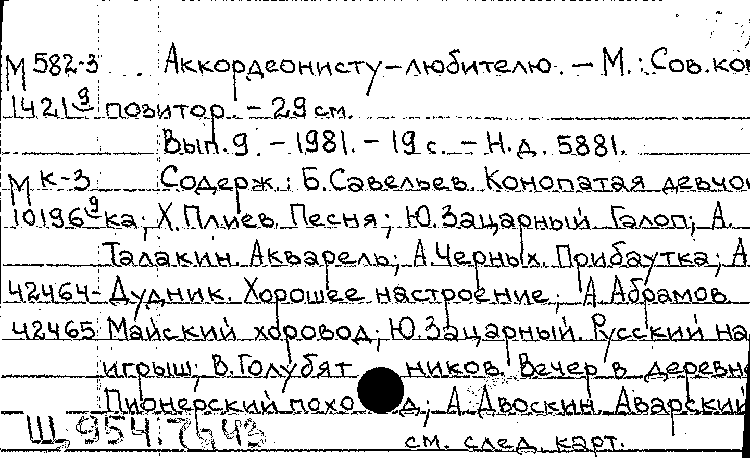 М 582-3 .. Аккордеонисту-любителю. – М.: Сов. ком
1421 9 позитор. – 29 см.
Вып. 9. – 1981. – 19 с. – Н.д. 5881.
М К-3 Содерж.: Б. Савельев. Конопатая девчон
10196 9 ка; Х. Плиев. Песня; Ю. Зацарный. Галоп; А.
Талакин. Акварель; А. Черных. Прибаутка; А
42464- Дудник. Хорошее настроение; А. Абрамов
42465 Майский хоровод; Ю. Зацарный. Русский на
игрыш; В. Голубят ников. Вечер в деревне
Пионерский похо д; А. Двоскин. Аварский
Щ 954.7
см. след. карт.